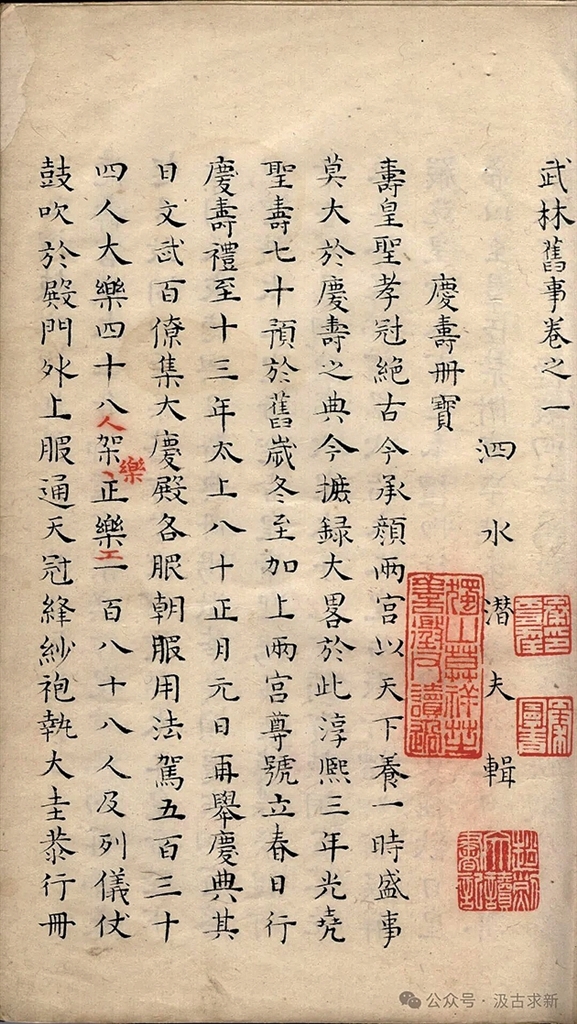 武林舊事卷之一
泗水潜夫輯
慶壽冊寶
壽皇聖孝冠絕古今承顔兩宮以天下養一時盛事
莫大於慶壽之典今摭録大畧於此淳熙三年光堯
聖壽七十預於舊歲冬至加上兩宮尊號立春日行
慶壽禮至十三年太上八十正月元日再舉慶典其
日文武百僚集大慶殿各服朝服用法駕五百三十
四人大樂四十八人架樂正樂工一百八十八人及列儀仗
鼓吹於殿門外上服通天冠絳紗袍執大圭恭行冊
公众号·汲古求新